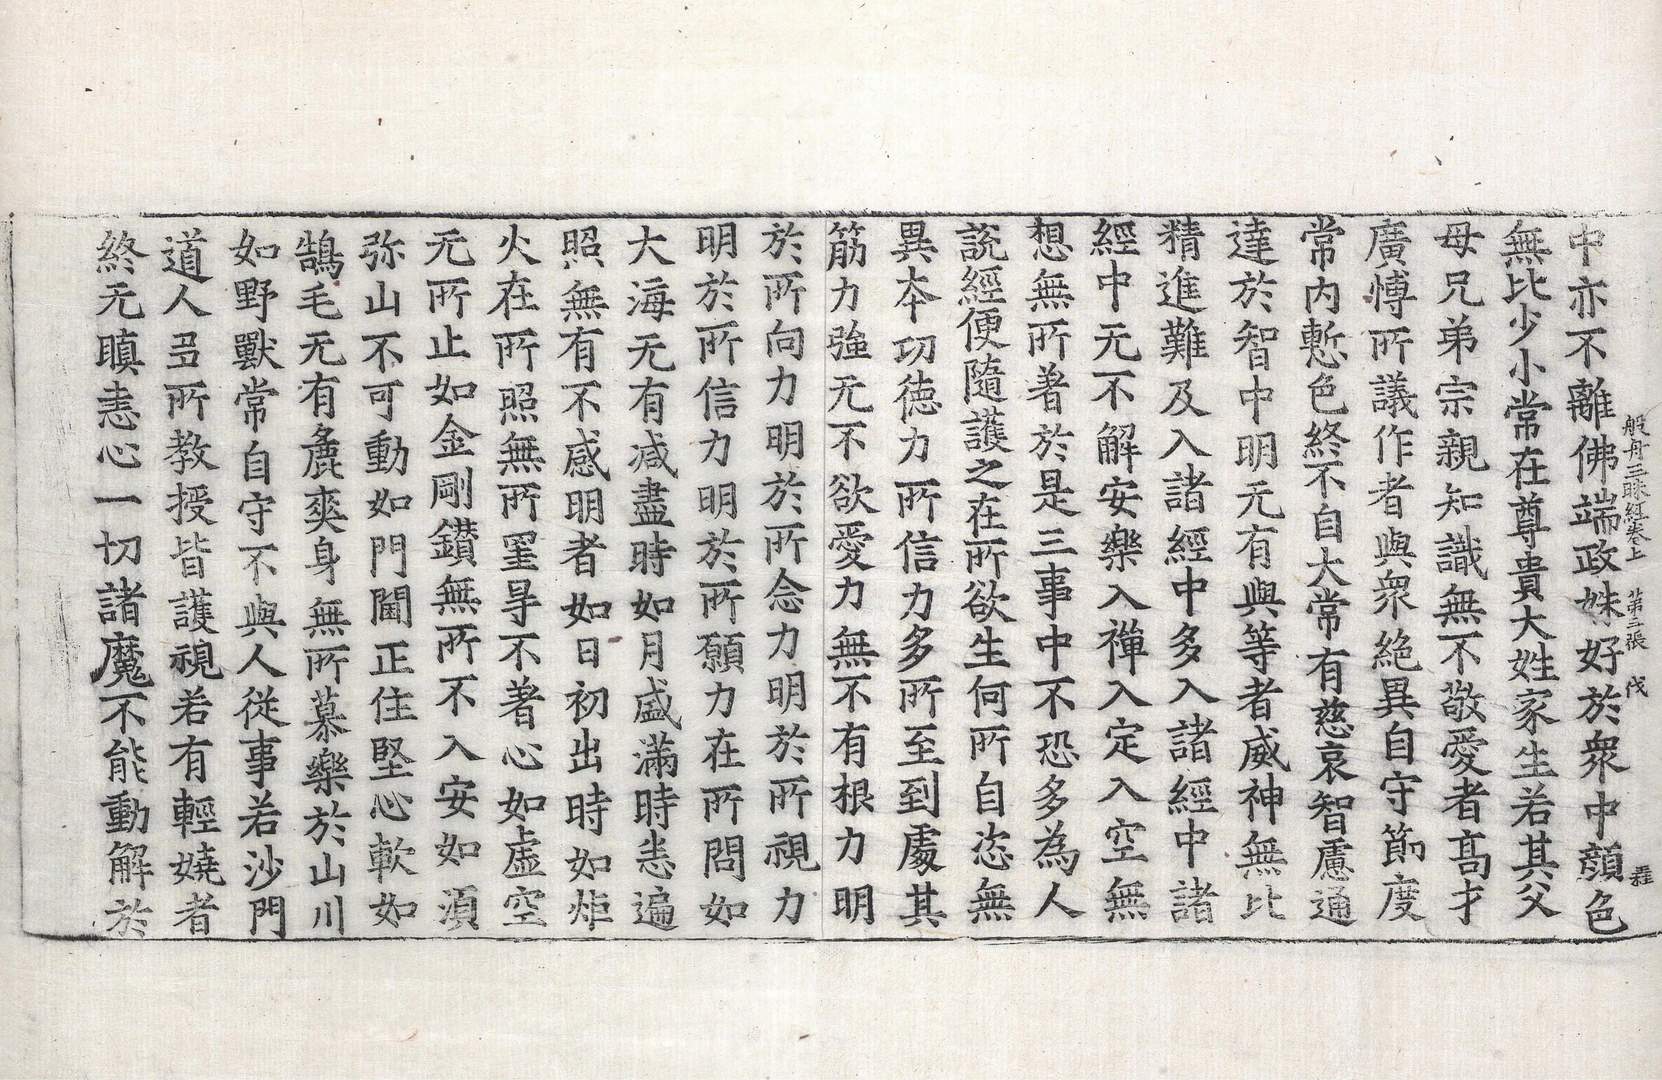 般舟三昧經卷上　第三張　伐
中亦不離佛端政姝好於衆中顔色
無比少小常在尊貴大姓家生若其父
母兄弟宗親知識無不敬愛者高才
廣愽所議作者與衆絶異自守節度
常内慙色終不自大常有慈哀智慮通
達於智中明无有與等者威神無比
精進難及入諸經中多入諸經中諸
經中无不解安樂入禪入定入空無
想無所著於是三事中不恐多為人
説經便隨護之在所欲生何所自恣無
異本功徳力所信力多所至到處其
筋力強无不欲愛力無不有根力明
於所向力明於所念力明於所視力
明於所信力明於所願力在所問如
大海无有减盡時如月盛滿時悉遍
照無有不感明者如日初出時如炬
火在所照無所罣㝵不著心如虚空
无所止如金剛鑚無所不入安如湏
弥山不可動如門閫正住堅心軟如
鵠毛无有麁爽身無所慕樂於山川
如野獸常自守不與人從事若沙門
道人多所教授皆護視若有輕嬈者
終无瞋恚心一切諸魔不能動解於